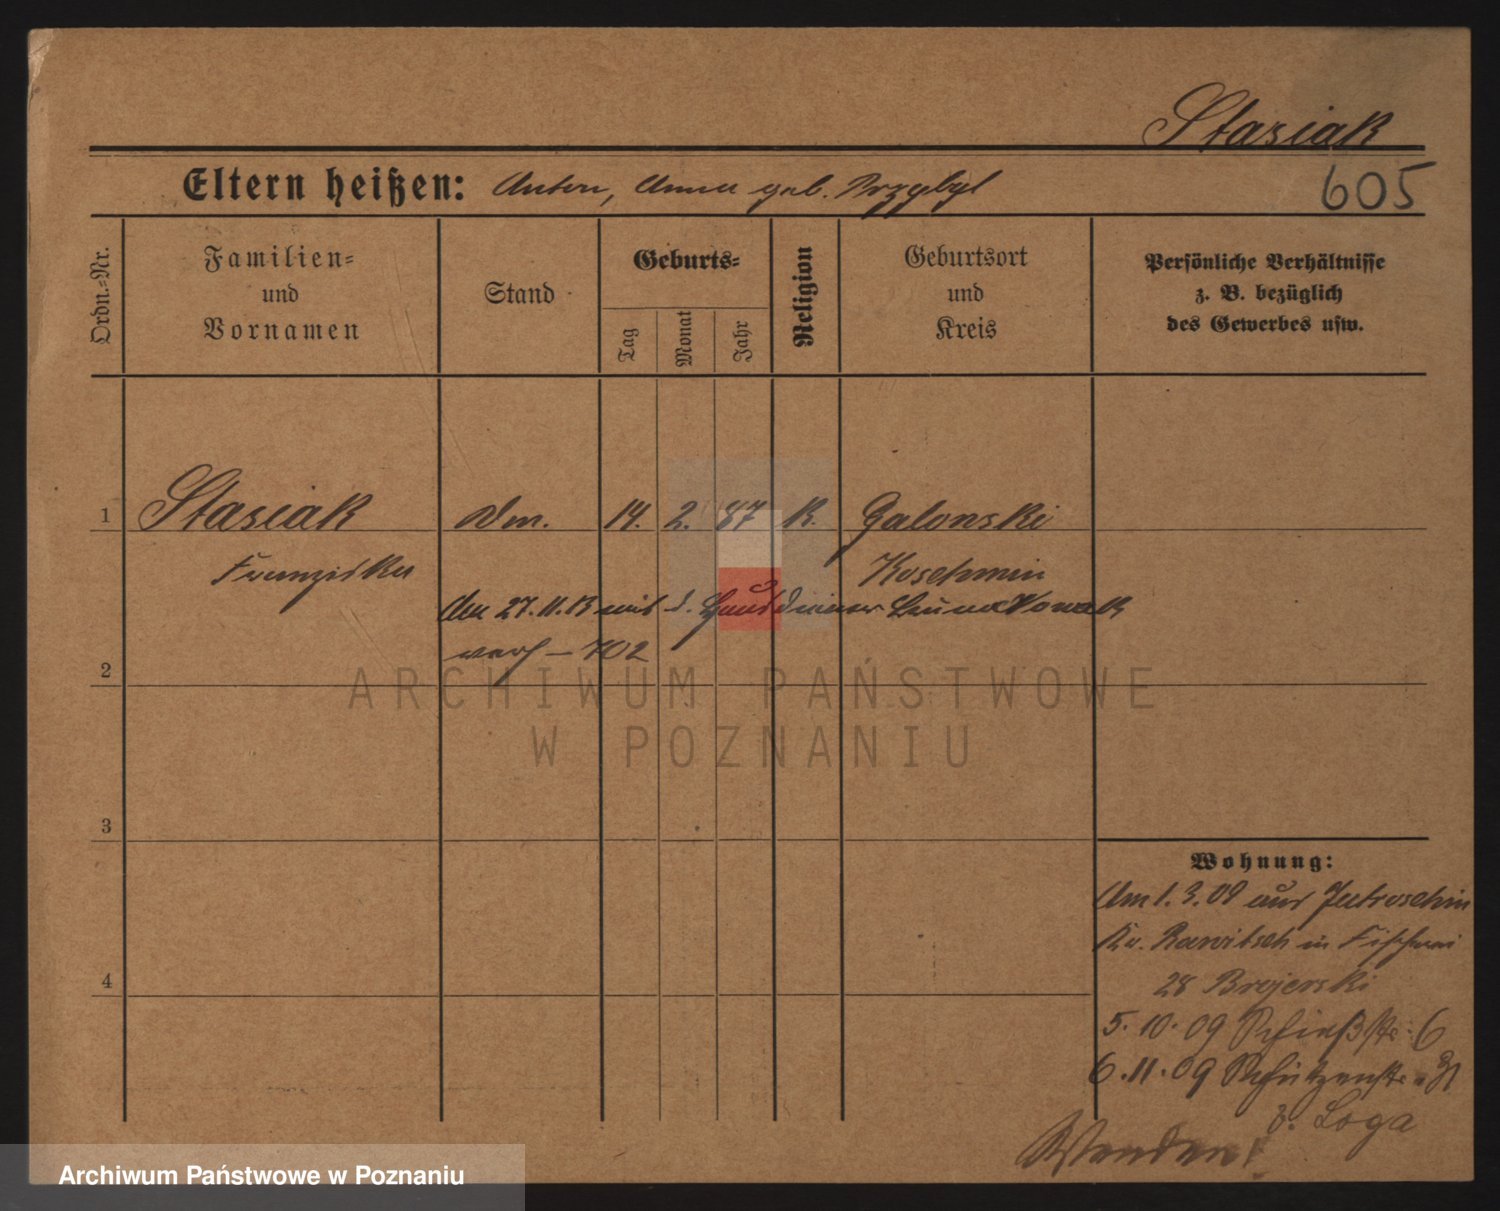 Stasiak
Eltern heißen: Anton, Anna geb. Przybyl
605
Ordn.-Nr.
Familien-
und
Vornamen
Stand
Geburts-
Tag
Monat
Jahr
Religion
Geburtsort
und
Kreis
Persönliche Verhältnisse
z. B. bezüglich
des Gewerbes usw.
1 Stasiak 14. 2. 87 K. Galonski
Franziska Koschmin
Am 27.11.13 mit d. Hausdiener Nowak
verh — 702
2
ARCHIWUM PAŃSTWOWE
W POZNANIU
3
4
Wohnung:
Am 1.3.09 aus Jutroschin
Kr. Rawitsch in
28 Brejerski
5.10.09 Schießstr. 6
6.11.09 Schützenstr.
b. Loga
Wenden!
Archiwum Państwowe w Poznaniu